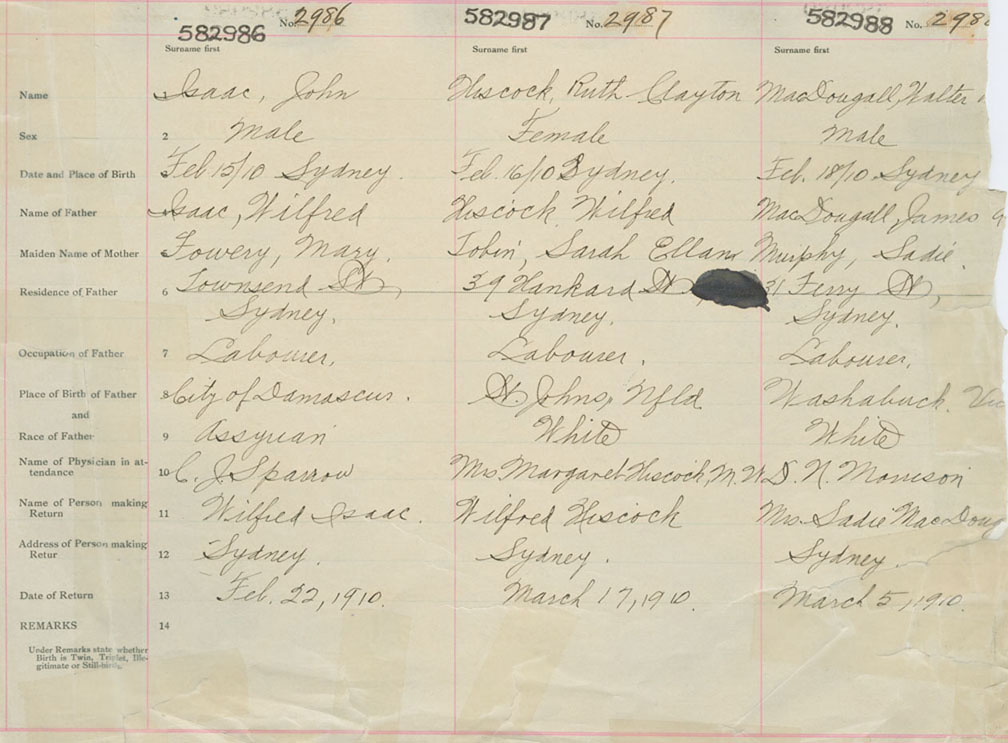 582986 No. 2986 582987 No. 2987 582988 No. 298
Surname first Surname first Surname first
Name 1 Isaac, John Hiscock, Ruth Clayton MacDougall, Walter
Sex 2 Male Female Male
Date and Place of Birth Feb 15/10 Sydney. Feb. 16/10 Sydney. Feb. 18/10 Sydney
Name of Father Isaac, Wilfred Hiscock Wilfred MacDougall, James
Maiden Name of Mother Fowery, Mary. Tobin, Sarah Ellan Murphy, Sadie.
Residence of Father 6 Townsend St, 39 Hankard St 31 Ferry St,
Sydney. Sydney. Sydney.
Occupation of Father 7 Labourer, Labourer. Labourer,
Place of Birth of Father 8 City of Damascus. St Johns, Nfld Washabuck. Vic
and
Race of Father 9 Assyrian White White
Name of Physician in at-
tendance 10 C. J. Sparrow Mrs. Margaret Hiscock, M. W D. N. Morrison
Name of Person making
Return 11 Wilfred Isaac. Wilfred Hiscock Mrs. Sadie MacDoug
Address of Person making
Retur 12 Sydney. Sydney. Sydney.
Date of Return 13 Feb. 22, 1910. March 17, 1910. March 5, 1910.
REMARKS 14
Under Remarks state whether
Birth is Twin, Triplet, Ille-
gitimate or Still-birth.